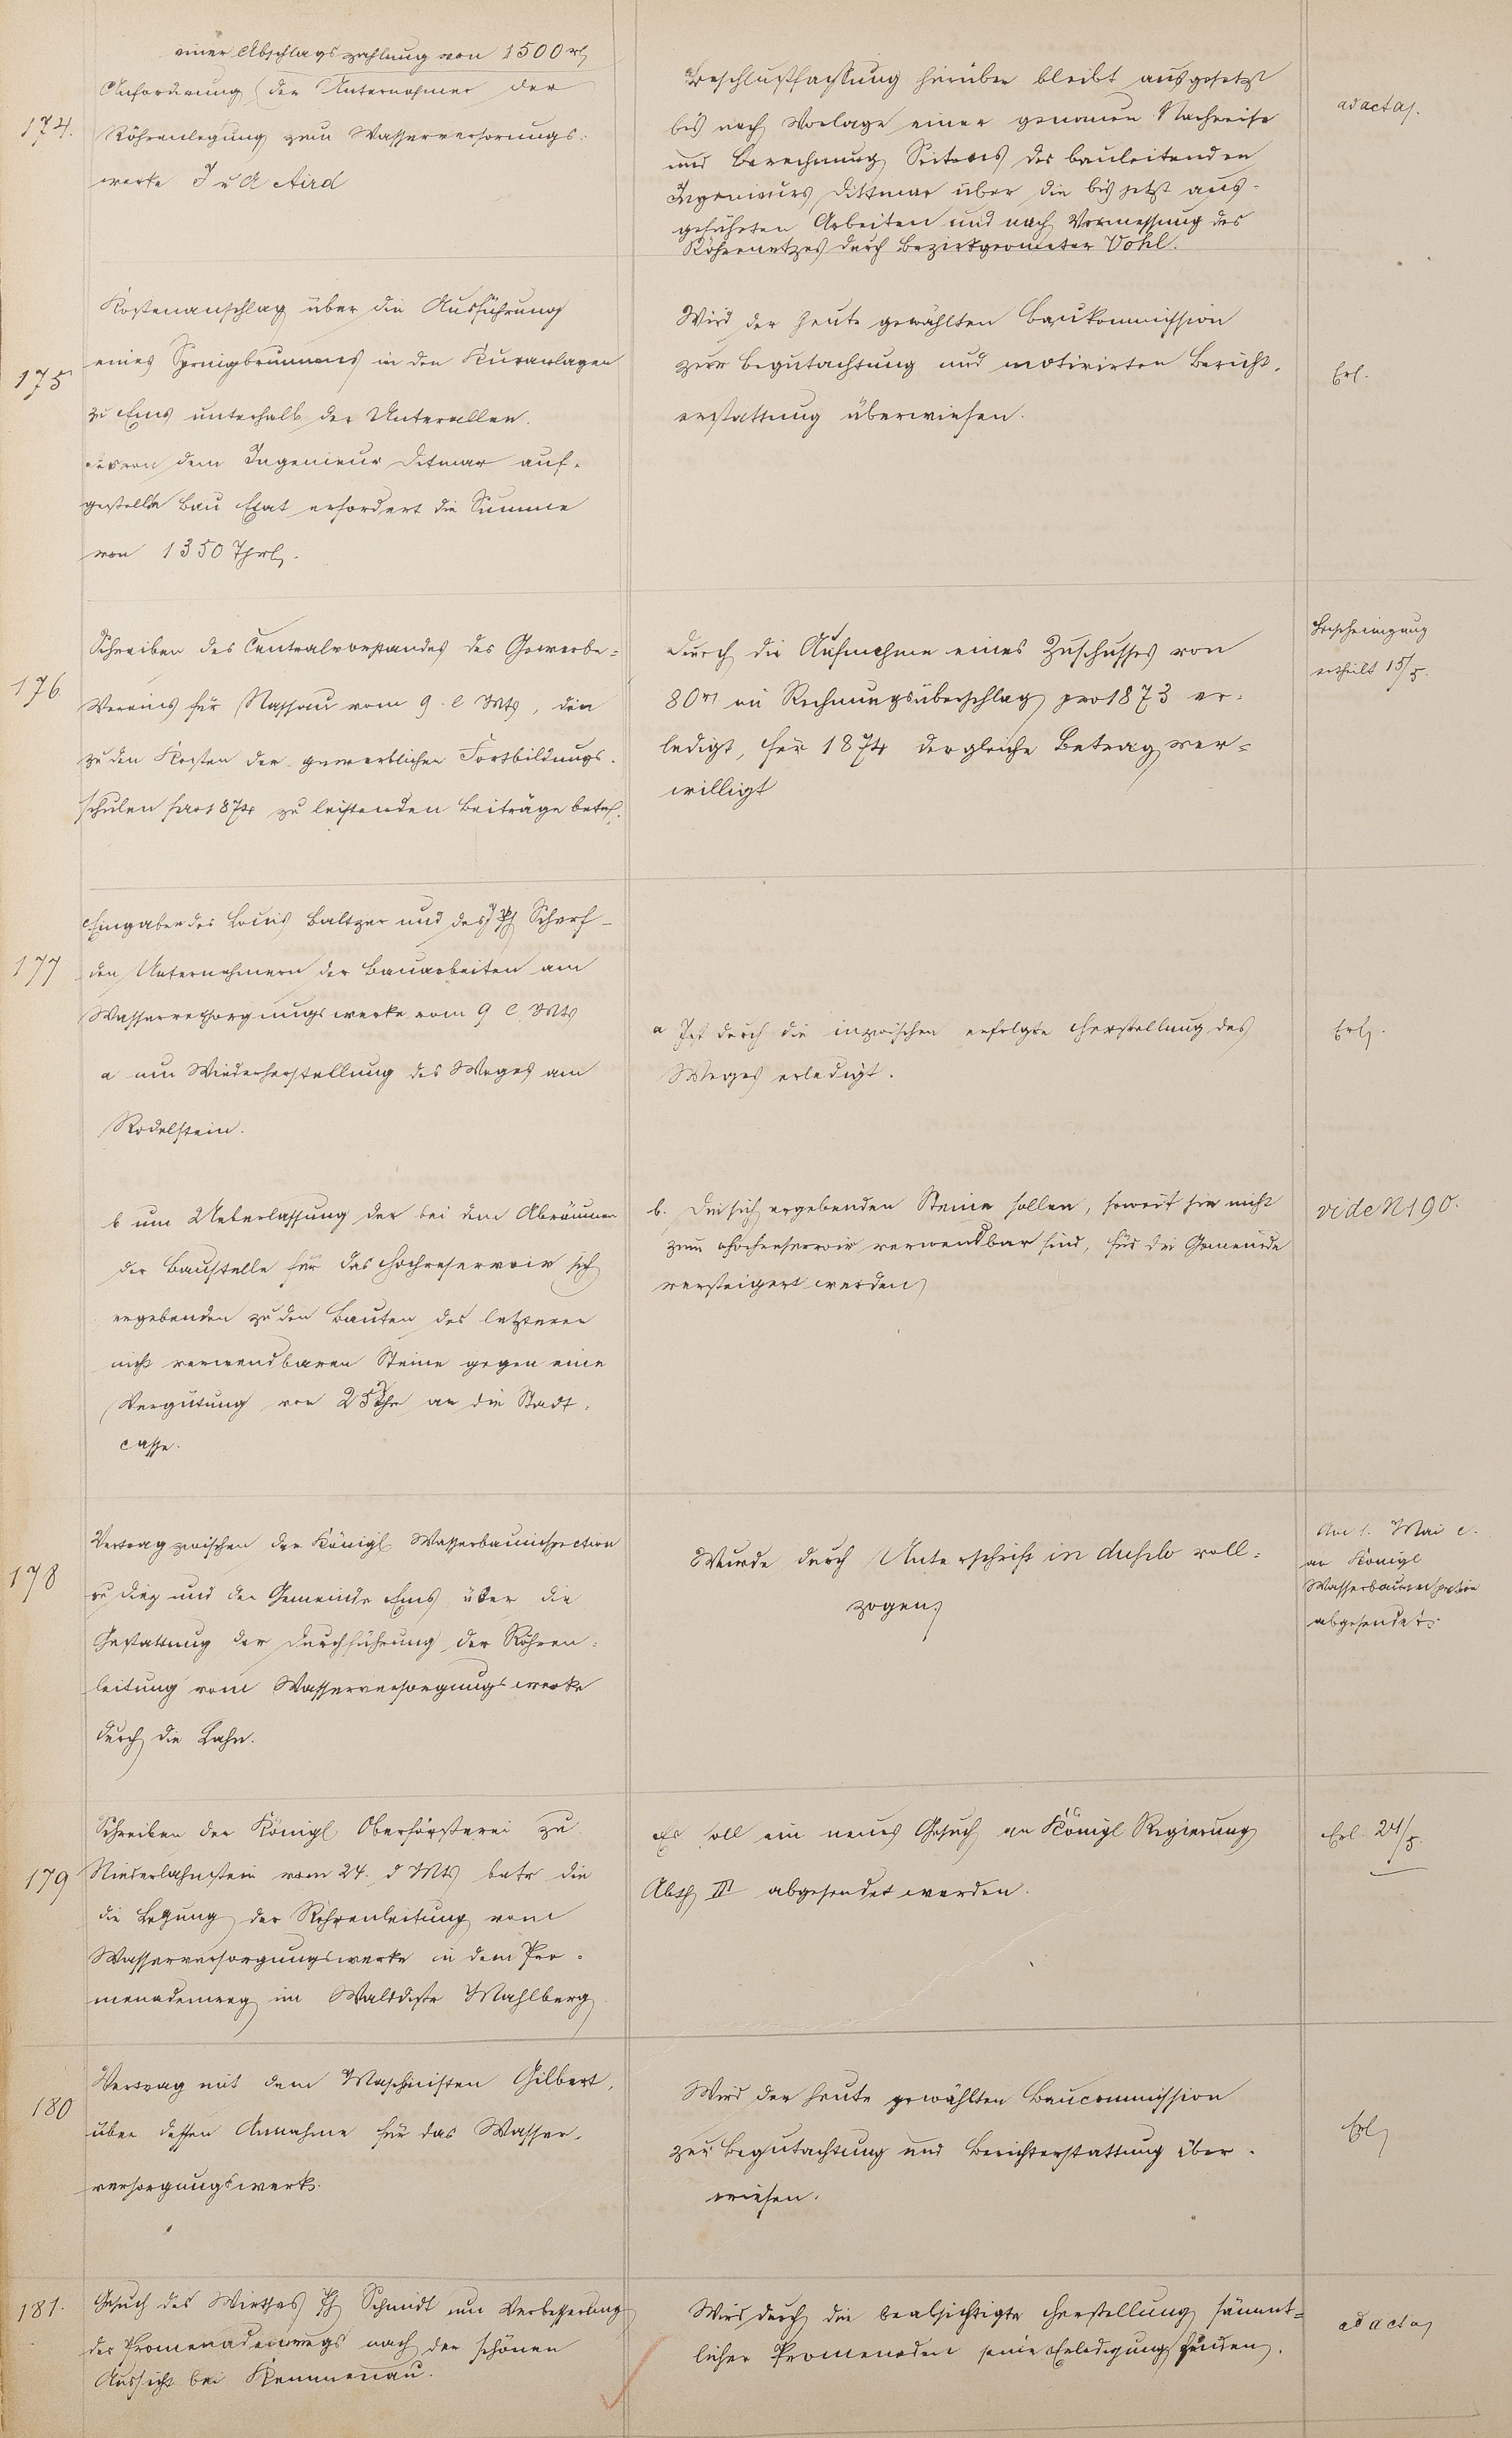 einer Abschlagszahlung von 1500 rl
174.
Anforderung der Unternehmer der
Röhrenlegung zum Wasserversorungs-
werke J u A Aird
Beschlußfassung hierüber bleibt ausgesetzt
bis nach Vorlage einer genauen Nachweise
und Berechnung Seitens des bauleitenden
Ingenieurs Dittmar über die bis jetzt aus-
geführten Arbeiten und nach Vermessung des
Röhrennetzes durch Bezirksgeometer Vohl.
ad acta.
175
Kostenanschlag über die Ausführung
eines Springbrunnens in den Kuranlagen
zu Ems unterhalb der Unterallee.
der von dem Ingenieur Ditmar auf-
gestellte Bau Etat erfordert die Summe
von 1350 Thrl.
Wird der heute gewählten Baukommission
zur Begutachtung und motivirten Bericht-
erstattung überwiesen.
Erl.
176
Schreiben des Centralvorstandes des Gewerbe-
Vereins für Nassau vom 9. l Mts, die
zu den Kosten der gewerblichen Fortbildungs-
schulen pro 1874 zu leistenden Beiträge betrf.
durch die Aufnahme eines Zuschusses von
80 rl im Rechnungsüberschlag pro 1873 er-
ledigt, für 1874 der gleiche Betrag ver-
willigt
Bescheinigung
ertheilt 15/5.
177
Eingaben des Louis Baltzer und des Ph Scherf-
den Unternehmern der Bauarbeiten am
Wasserversorgungswerke vom 9 l Mts
a um Wiederherstellung des Weges am
Rodelstein.
a Ist durch die inzwischen erfolgte Herstellung des
Weges erledigt.
Erl.
b um Ueberlassung der bei dem Abräumen
der Baustelle für das Hochreservoir sich
ergebenden zu den Bauten des letzteren
nicht verwendbaren Steine gegen eine
Vergütung von 25 Thr an die Stadt-
casse.
b. Die sich ergebenden Steine sollen, soweit sie nicht
zum Hochreservoir verwendbar sind, für die Gemeinde
versteigert werden
vide N 190.
178
Vertrag zwischen der Königl Wasserbauinspection
zu Diez und der Gemeinde Ems über die
Gestattung der Durchführung der Röhren-
leitung vom Wasserversorgungswerke
durch die Lahn.
Wurde durch Unterschrift in duplo voll-
zogen.
Am 1. Mai c.
an Königl
Wasserbauinspection
abgesendet.
179
Schreiben der Königl Oberförsterei zu
Niederlahnstein vom 24. d Mts betr die
die Legung der Rohrenleitung vom
Wasserversorgungswerke in dem Pro-
menadenweg im Walddistr Mahlberg
Es soll ein neues Gesuch an Königl Regierung
Abth III abgesendet werden.
Erl. 24/5.
180
Vertrag mit dem Maschinisten Gilbert,
über dessen Annahme für das Wasser-
versorgungswerk.
Wird der heute gewählten Baucommission
zur Begutachtung und Berichterstattung über-
wiesen.
Erl
181.
Gesuch des Wirthes Ph Schmidt um Verbesserung
des Promenadenwegs nach der schönen
Aussicht bei Kemmenau.
Wird durch die beabsichtigte Herstellung sämmt-
licher Promenaden seine Erledigung finden.
ad acta